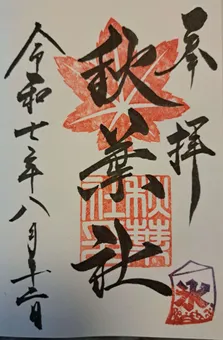 奉拝
秋葉社
秋葉社
令和七年八月十二日